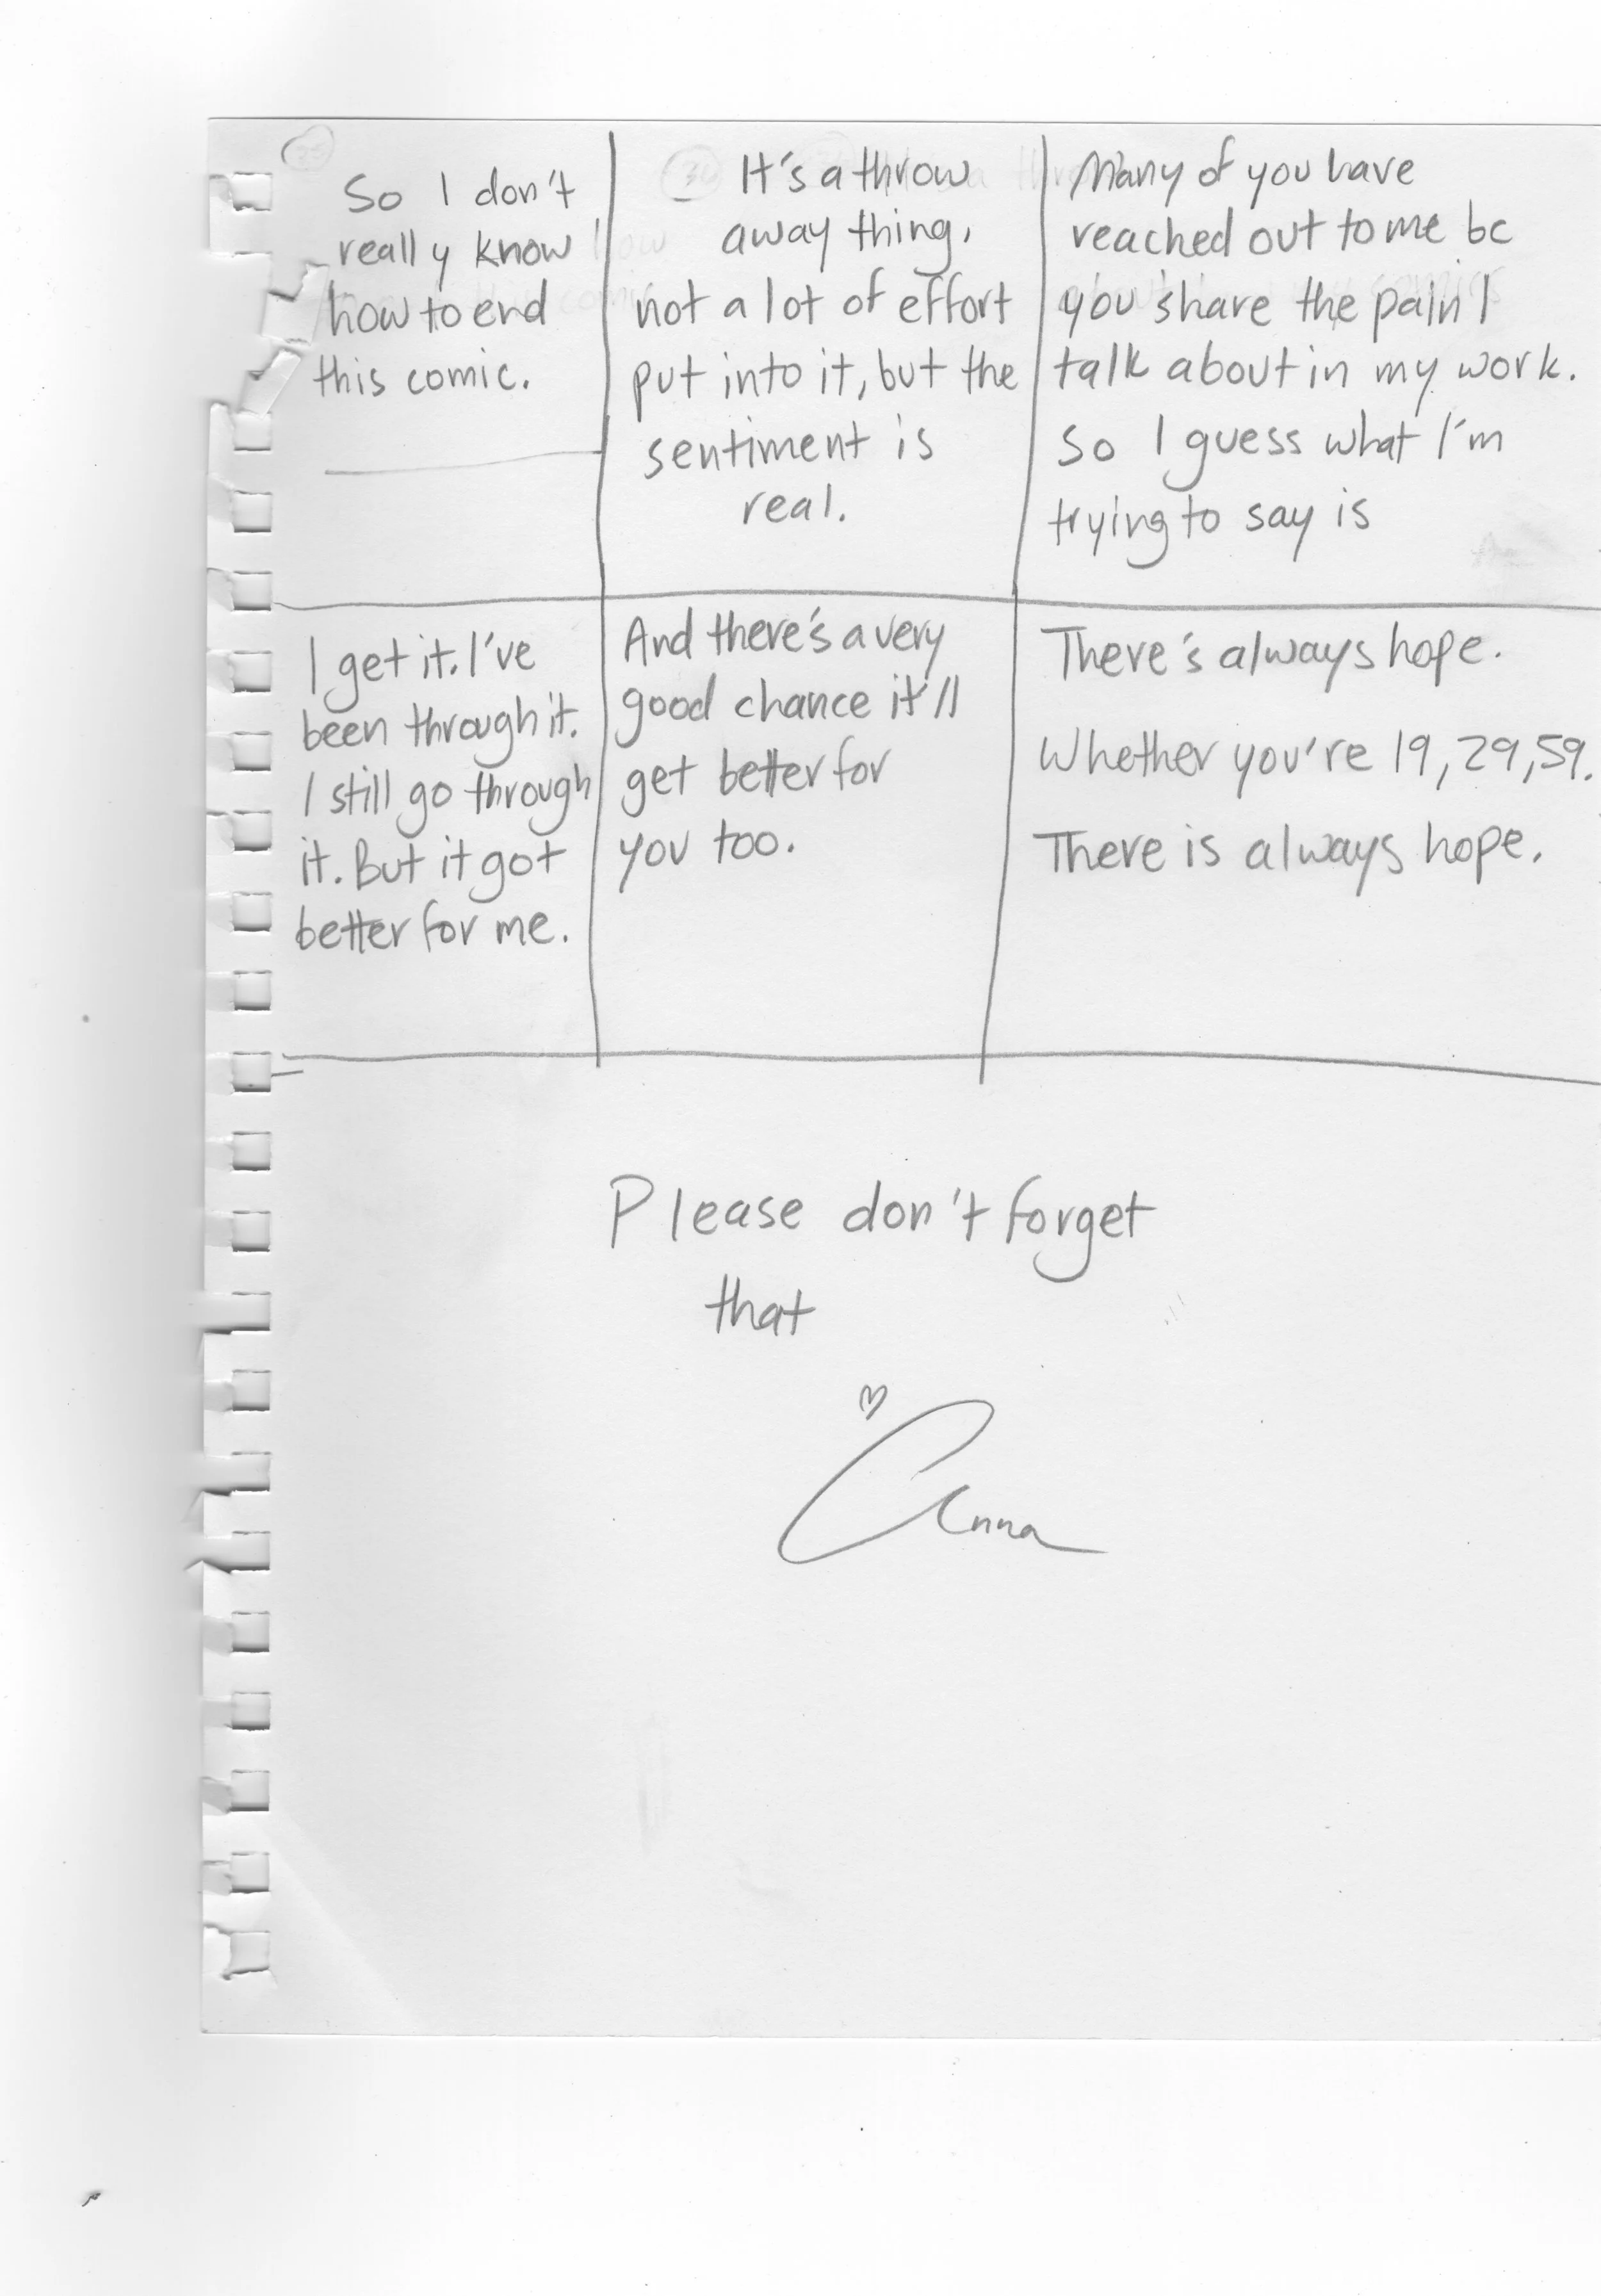 So I don't
really know
how to end
this comic.
It's a throw
away thing,
not a lot of effort
put into it, but the
sentiment is
real.
Many of you have
reached out to me bc
you share the pain I
talk about in my work.
So I guess what I'm
trying to say is
I get it. I've
been through it.
I still go through
it. But it got
better for me.
And there's a very
good chance it'll
get better for
you too.
There's always hope.
Whether you're 19, 29, 59.
There is always hope.
Please don't forget
that
Anna